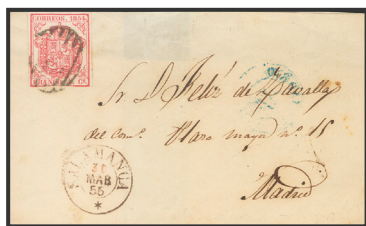 CORREOS. 1854
Sr. D. Feliz de
del Com.o Plaza mayor n.o 15
Madrid
SALAMANCA
31
MAR
55
*